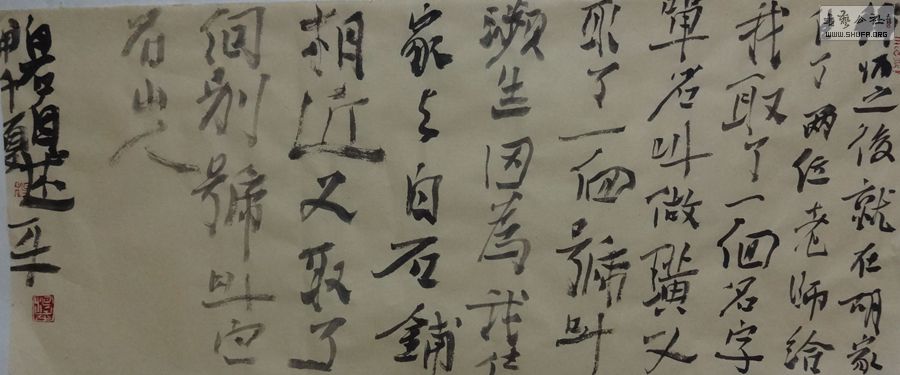 師之後就在胡家
了兩位老师給
我取了一個名字
單名叫做璜又
取了一個號叫
瀕生因為我住
家与白石鋪
相近又取了
個别號叫白
石山人
自述
書法公社
WWW.SHUFA.ORG